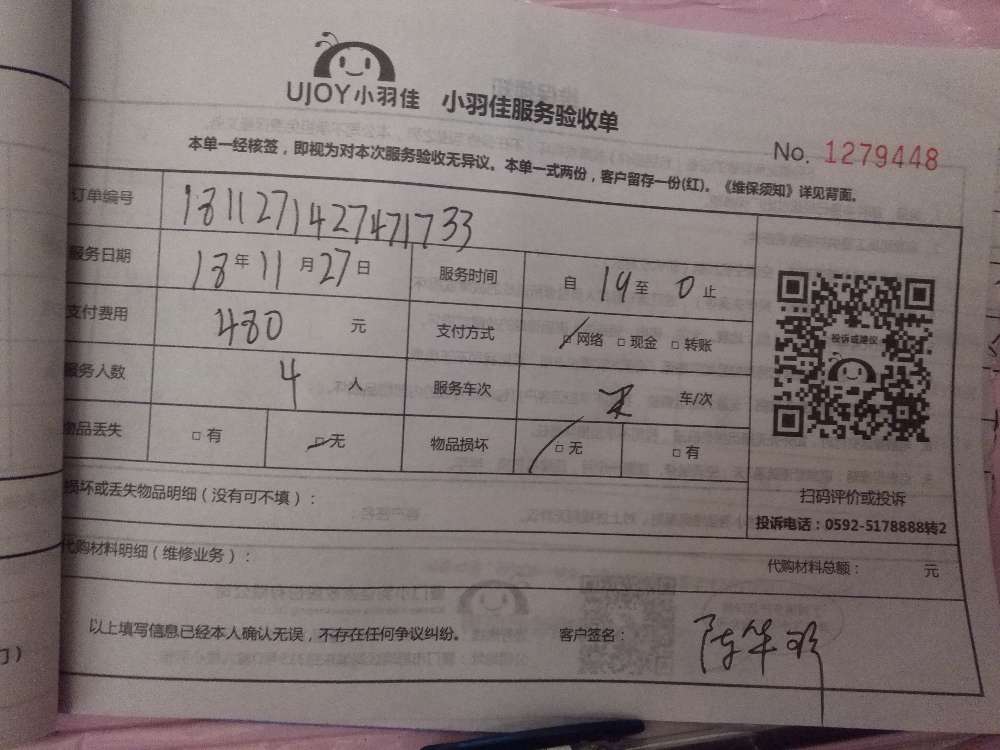 UJOY小羽佳 小羽佳服务验收单
No. 1279448
本单一经核签，即视为对本次服务验收无异议。本单一式两份，客户留存一份(红)。《维保须知》详见背面。
订单编号 1811271427471733
服务日期 18年11月27日 服务时间 自19至0止
支付费用 480元 支付方式 □网络 □现金 □转账
服务人数 4人 服务车次 车/次
物品丢失 □有 □无 物品损坏 □无 □有
投诉或建议
扫码评价或投诉
投诉电话：0592-5178888转2
损坏或丢失物品明细（没有可不填）：
代购材料明细（维修业务）： 代购材料总额： 元
以上填写信息已经本人确认无误，不存在任何争议纠纷。 客户签名： 陈华